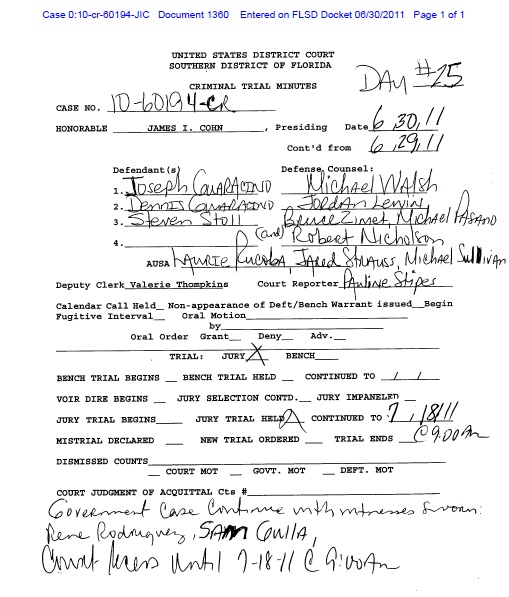 Case 0:10-cr-60194-JIC Document 1360 Entered on FLSD Docket 06/30/2011 Page 1 of 1
UNITED STATES DISTRICT COURT
SOUTHERN DISTRICT OF FLORIDA
CRIMINAL TRIAL MINUTES DAY #25
CASE NO. 10-60194-CR
HONORABLE JAMES I. COHN, Presiding Date 6/30/11
Cont'd from 6/29/11
Defendant(s) Defense Counsel:
1. Joseph Michael Walsh
2. Dennis Jordan Lewin
3. Steven Stoll Bruce Zimet, Michael
4. (and) Robert Nicholson
AUSA Laurie Rucoba, Jared Strauss, Michael Sullivan
Deputy Clerk Valerie Thompkins Court Reporter Pauline Stipes
Calendar Call Held__ Non-appearance of Deft/Bench Warrant issued__Begin
Fugitive Interval__ Oral Motion
by
Oral Order Grant__ Deny__ Adv.__
TRIAL: JURY X BENCH
BENCH TRIAL BEGINS __ BENCH TRIAL HELD __ CONTINUED TO / /
VOIR DIRE BEGINS __ JURY SELECTION CONTD.__ JURY IMPANELED
JURY TRIAL BEGINS____ JURY TRIAL HELD X CONTINUED TO 7/18/11
MISTRIAL DECLARED __ NEW TRIAL ORDERED __ TRIAL ENDS @ 9:00 Am
DISMISSED COUNTS
__ COURT MOT __ GOVT. MOT __ DEFT. MOT
COURT JUDGMENT OF ACQUITTAL Cts #
Government Case Continue with witnesses sworn:
Rene Rodriguez, SAM Gulla,
Court until 7-18-11 @ 9:00 Am